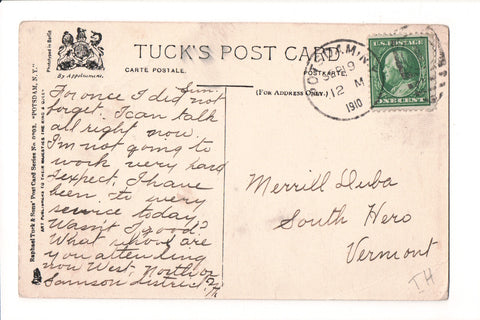 TUCK'S POST CARD
CARTE POSTALE.
POSTKARTE.
(FOR ADDRESS ONLY.)
By Appointment.
Phototyped in Berlin
Raphael Tuck & Sons' Post Card Series No. "POTSDAM, N.Y."
ART PUBLISHERS TO THEIR MAJESTIES THE KING & QUEEN
POTSDAM, N.Y.
12 M
1910
U.S. POSTAGE
ONE CENT
Sun.
For once I did not
forget. I can talk
all right now.
I'm not going to
work very hard
I expect. I have
been to every
service today.
Wasn't I good?
What school are
you attending
now West, North or
Samson district?
Merrill Duba
South Hero
Vermont